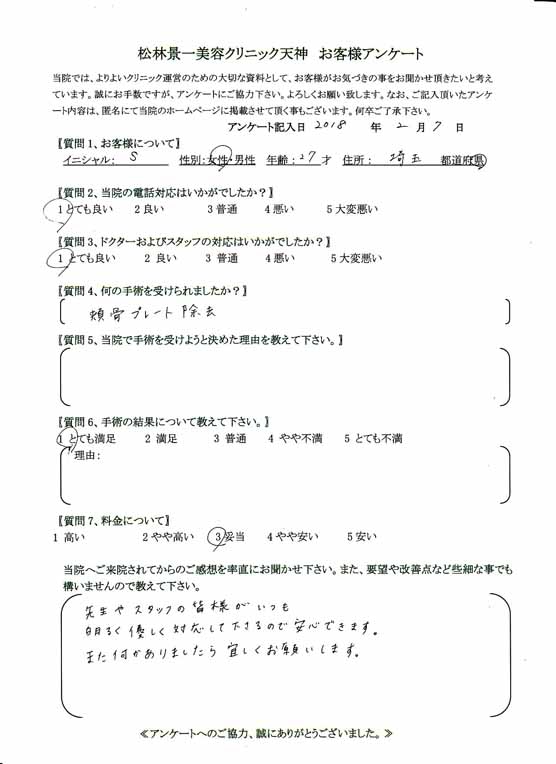 松林景一美容クリニック天神 お客様アンケート
当院では、よりよいクリニック運営のための大切な資料として、お客様がお気づきの事をお聞かせ頂きたいと考え
ています。誠にお手数ですが、アンケートにご協力下さい。よろしくお願い致します。なお、ご記入頂いたアンケ
ート内容は、匿名にて当院のホームページに掲載させて頂く事もございます。何卒ご了承下さい。
アンケート記入日 2018 年 2 月 7 日
【質問1、お客様について】
イニシャル: S 性別:女性・男性 年齢:27才 住所: 埼玉 都道府県
【質問2、当院の電話対応はいかがでしたか?】
1とても良い 2良い 3普通 4悪い 5大変悪い
【質問3、ドクターおよびスタッフの対応はいかがでしたか?】
1とても良い 2 良い 3 普通 4悪い 5大変悪い
【質問4、何の手術を受けられましたか?】
頬骨プレート除去
【質問5、当院で手術を受けようと決めた理由を教えて下さい。】
【質問6、手術の結果について教えて下さい。】
1 とても満足 2 満足 3 普通 4 やや不満 5 とても不満
理由:
【質問7、料金について】
1 高い 2やや高い 3妥当 4やや安い 5安い
当院へご来院されてからのご感想を率直にお聞かせ下さい。また、要望や改善点など些細な事でも
構いませんので教えて下さい。
先生やスタッフの皆様がいつも
明るく優しく対応して下さるので安心できます。
また何かありましたら宜しくお願いします。
≪アンケートへのご協力、誠にありがとうございました。≫